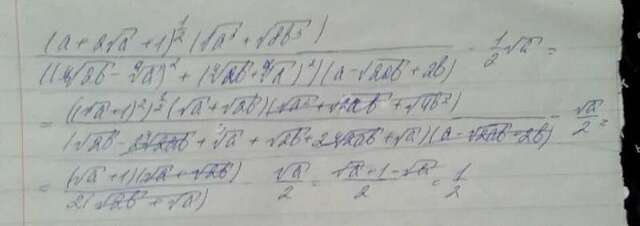 (a + 2√a + 1)^(1/2) (√a³ + √8b³) / ((⁴√2b - ⁴√a)² + (⁴√2b + ⁴√a)²)(a - √2ab + 2b) - 1/2 √a =
= ((√a + 1)²)^(1/2) (√a + √2b)(√a² + √2ab + √4b²) / (√2b - 2⁴√2ab + √a + √2b + 2⁴√2ab + √a)(a - √2ab + 2b) - √a/2 =
= (√a + 1)(√a + √2b) / 2(√2b + √a) - √a/2 = √a + 1 - √a / 2 = 1/2